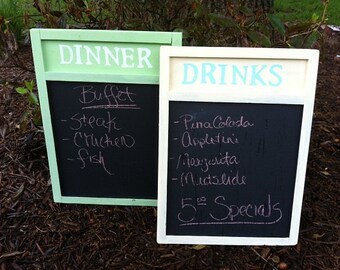 DINNER
Buffet
- Steak
- Chicken
- fish
DRINKS
- Pina Colada
- Appletini
- Margarita
- Mudslide
5.00 Specials